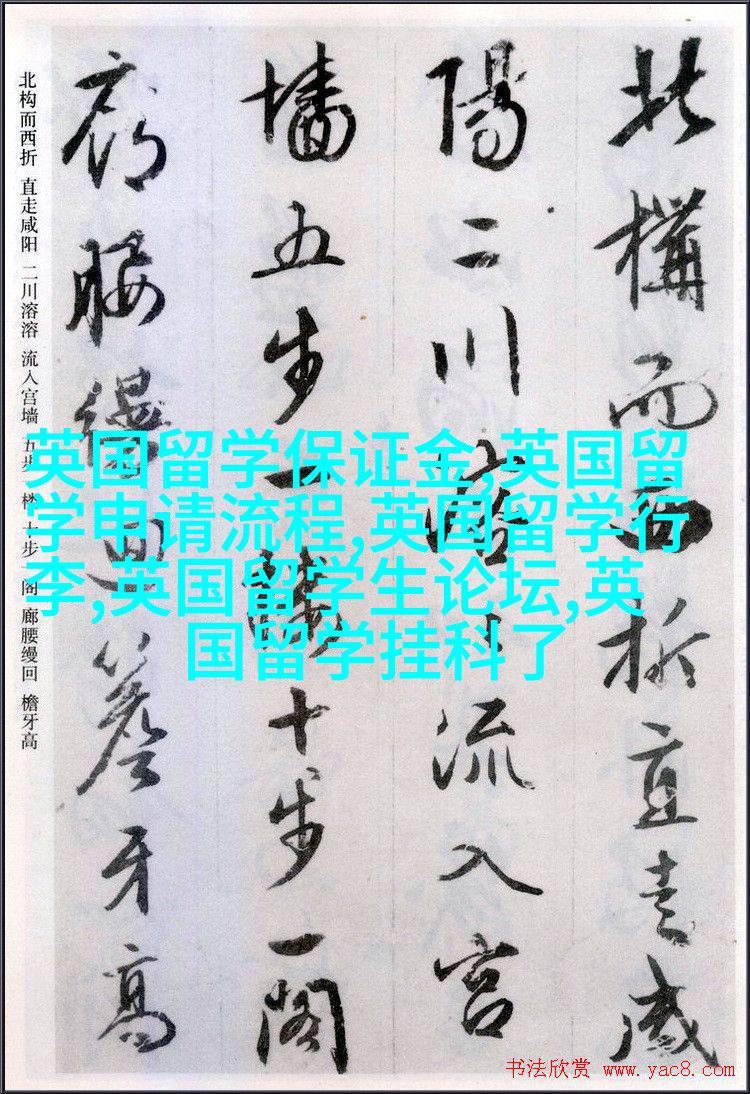 北構而西折直走咸
陽二川溶々流入宮
墻五步一樓十步一閣
廊腰縵迴簷牙高
北构而西折 直走咸阳 二川溶溶 流入宫墙 五步一楼 十步一阁 廊腰缦回 檐牙高
英国留学保证金,英国留
学申请流程,英国留学行
李,英国留学生论坛,英
国留学挂科了
书法欣赏 www.yac8.com